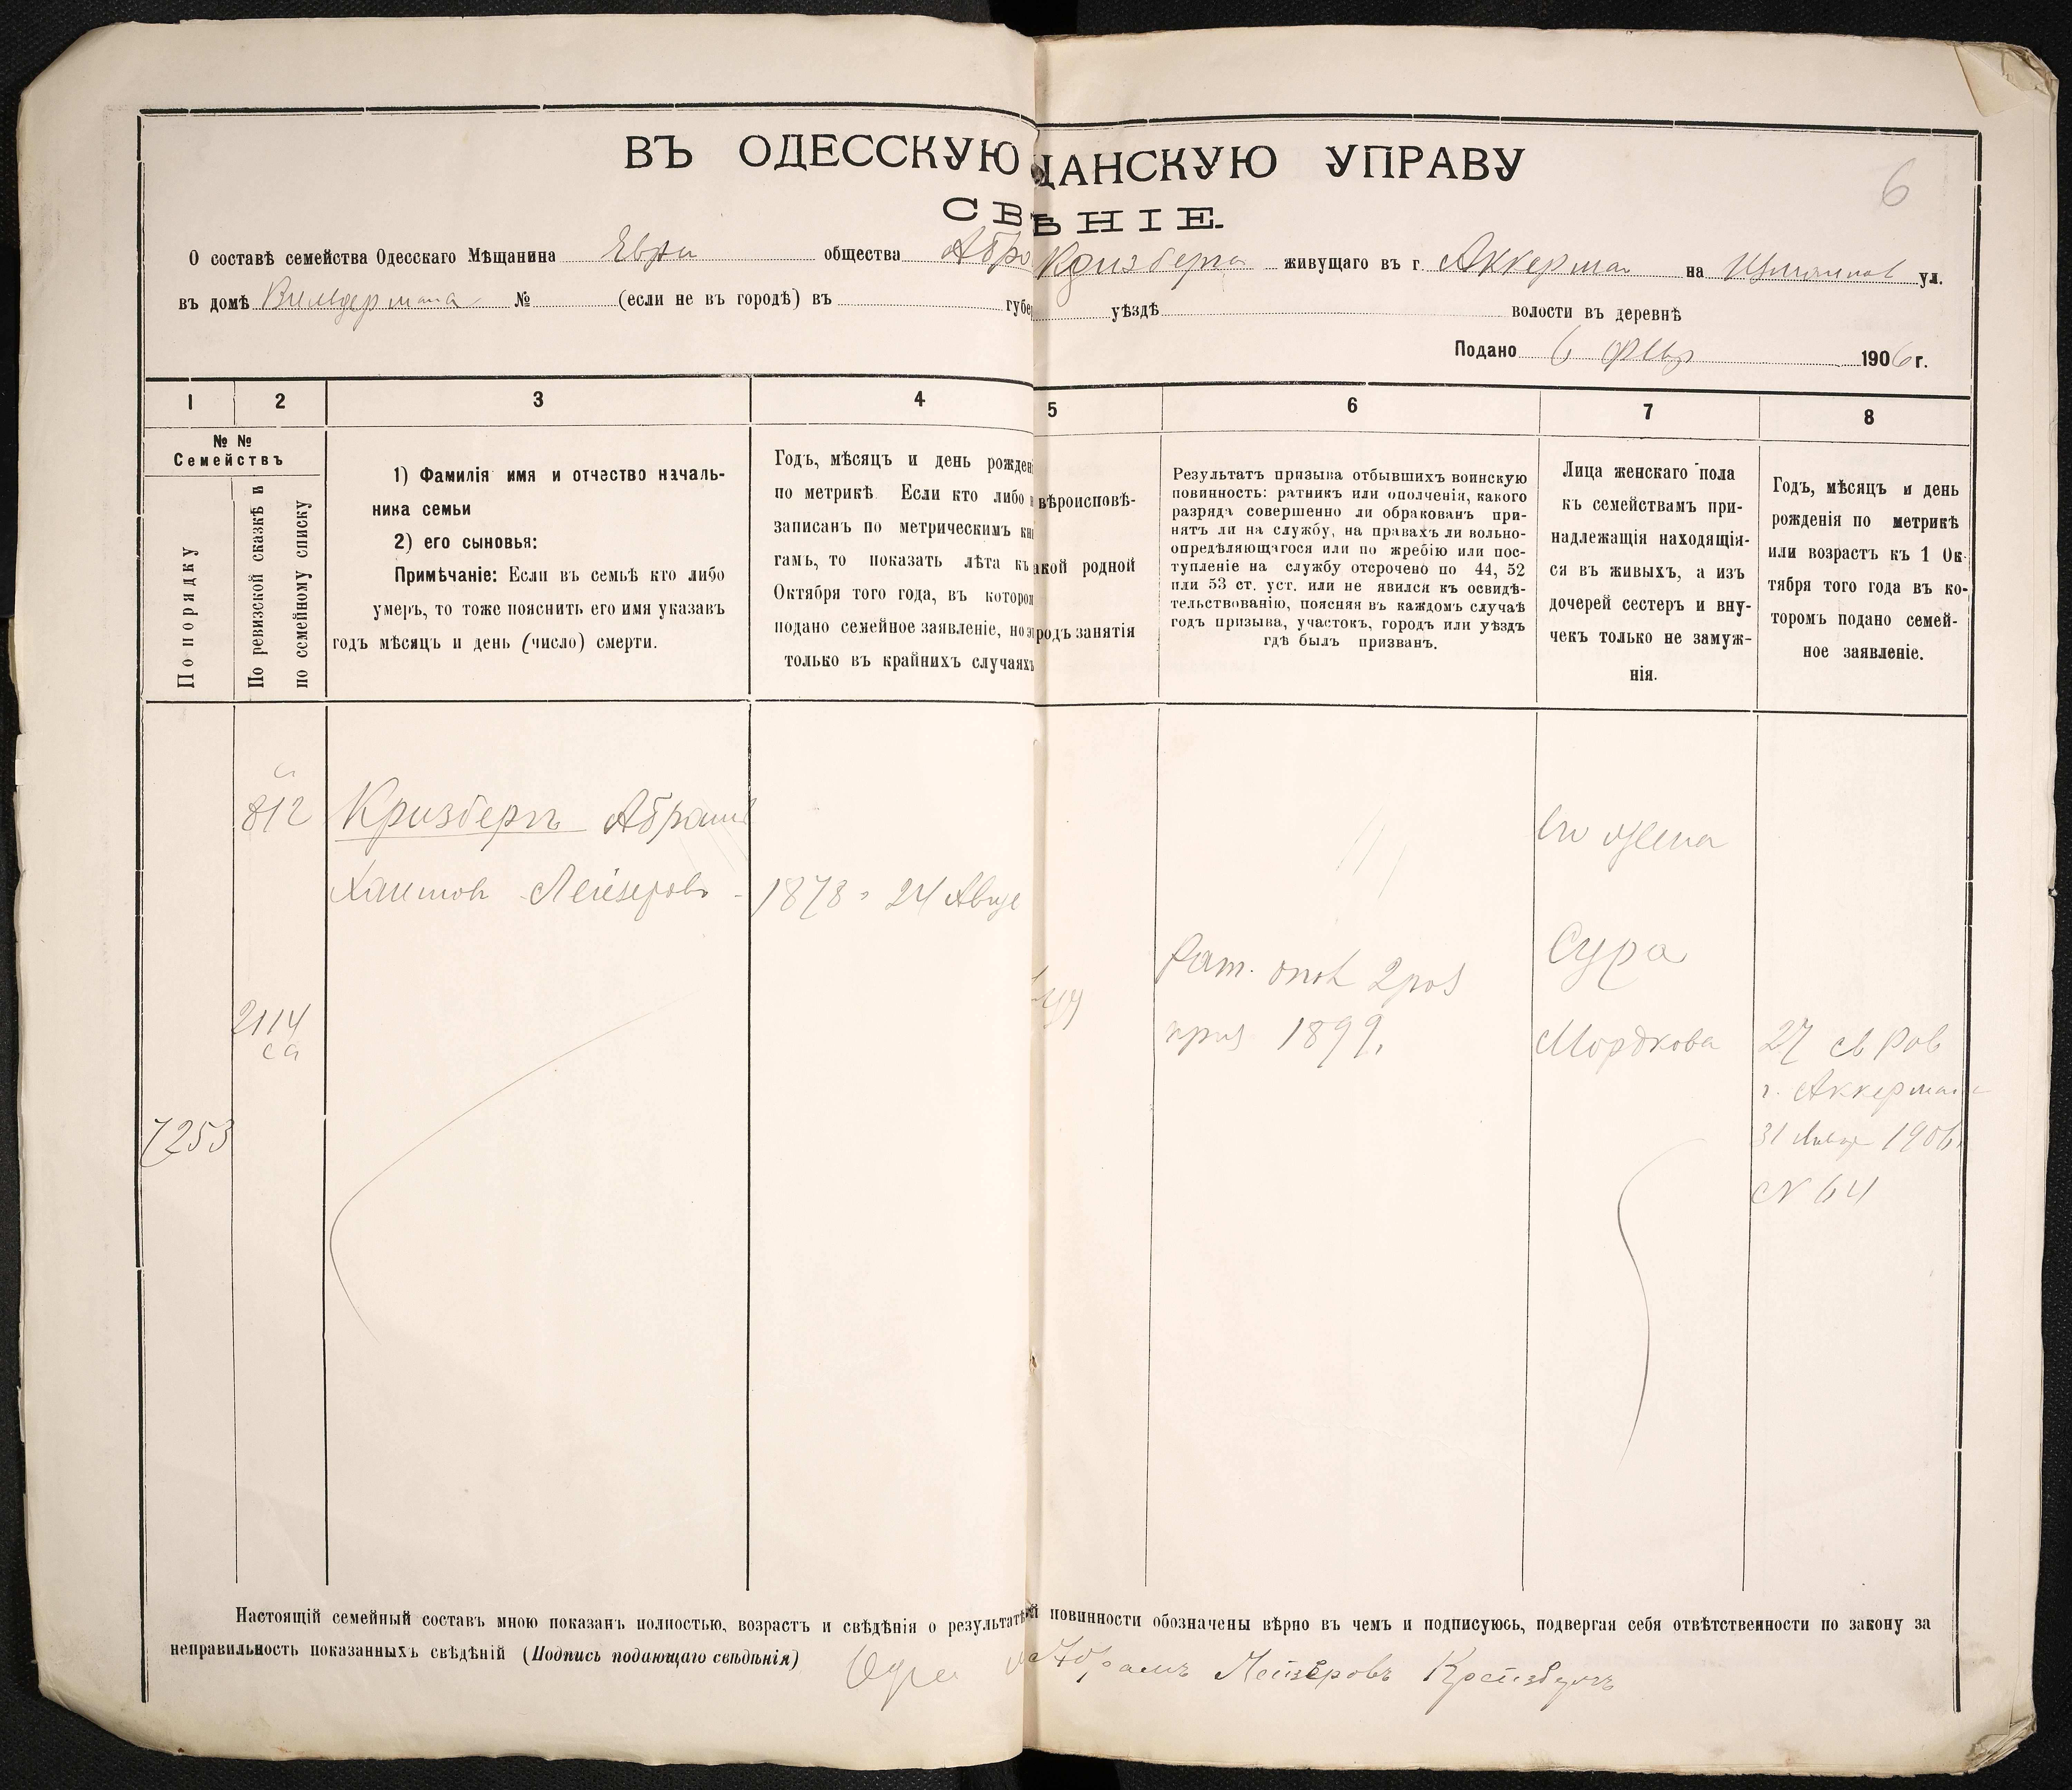 ВЪ ОДЕССКУЮ ЩАНСКУЮ УПРАВУ
6
СВѢНІЕ.
О составѣ семейства Одесскаго Мѣщанина Евреи общества Абра Кризберга живущаго въ г. Аккерман на Измаильс ул.
въ домѣ Вильдермана № (если не въ городѣ) въ губе уѣздѣ волости въ деревнѣ
Подано 6 Февр 1906 г.
1 2 3 4 5 6 7 8
№ №
Семействъ
По порядку
По ревизской сказкѣ и
по семейному списку
1) Фамилія имя и отчество началь-
ника семьи
2) его сыновья:
Примѣчаніе: Если въ семьѣ кто либо
умеръ, то тоже пояснить его имя указавъ
годъ мѣсяцъ и день (число) смерти.
Годъ, мѣсяцъ и день рожден
по метрикѣ Если кто либо н
записанъ по метрическимъ кни
гамъ, то показать лѣта къ
Октября того года, въ котором
подано семейное заявленіе, но эт
только въ крайнихъ случаяхъ
вѣроисповѣ-
акой родной
родъ занятія
Результатъ призыва отбывшихъ воинскую
повинность: ратникъ или ополченія, какого
разряда совершенно ли обракованъ при-
нятъ ли на службу, на правахъ ли вольно-
опредѣляющагося или по жребію или пос-
тупленіе на службу отсрочено по 44, 52
или 53 ст. уст. или не явился къ освидѣ-
тельствованію, поясняя въ каждомъ случаѣ
годъ призыва, участокъ, городъ или уѣздъ
гдѣ былъ призванъ.
Лица женскаго пола
къ семействамъ при-
надлежащія находящія-
ся въ живыхъ, а изъ
дочерей сестеръ и вну-
чекъ только не замуж-
нія.
Годъ, мѣсяцъ и день
рожденія по метрикѣ
или возрастъ къ 1 Ок-
тября того года въ ко-
торомъ подано семей-
ное заявленіе.
812 Кризбергъ Абрам
Хаимов Лейзеров 1878 24 Авгус
2114
са
7253
Рат. опол 2 раз
приз 1899.
Его жена
Сура
Мордкова
27 св Рав
г. Аккерман
31 Января 1906
№ 64
Настоящій семейный составъ мною показанъ полностью, возрастъ и свѣдѣнія о результатѣ й повинности обозначены вѣрно въ чемъ и подписуюсь, подвергая себя отвѣтственности по закону за
неправильность показанныхъ свѣдѣній (Подпись подающаго свѣдѣнія) Абрамъ Лейзеровъ Крейзбергъ